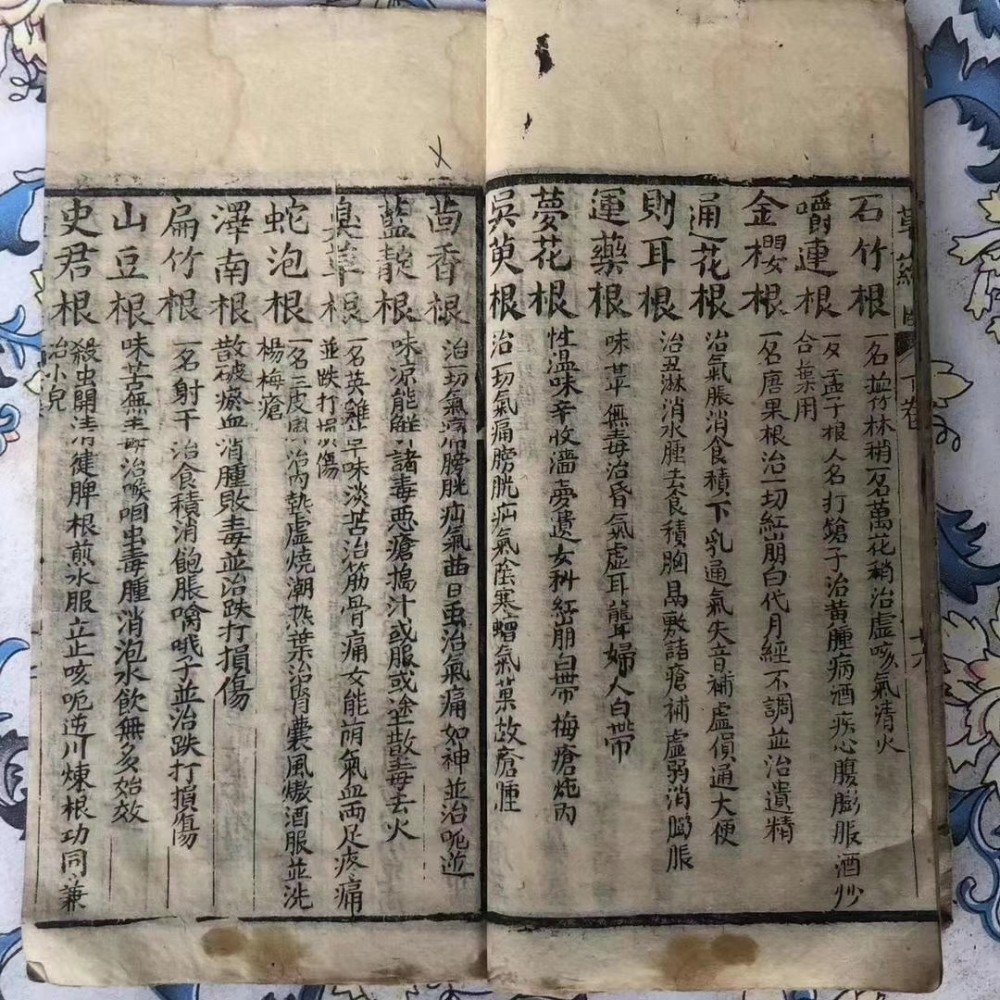 石竹根 一名㧡竹林稍一名萬花稍治虛咳氣清火
嚼連根 一名孟子根人名打鎗子治黃腫病酒疾心腹膨脹酒炒
合藥用
金櫻根 一名唐果根治一切紅崩白代月經不調並治遺精
通花根 治氣脹消食積下乳通氣失音補虛損通大便
則耳根 治丑淋消水腫去食積胸膈敷諸瘡補虛弱消膈脹
運藥根 味苹無毒治昏氣虛耳聾耳婦人白帶
夢花根 性溫味辛收濇虛遺女科紅崩白帶梅瘡炖肉
吳萸根 治一切氣痛膀胱疝氣陰寒
茴香根 治一切氣痛膀胱疝氣茴日虽治氣痛如神並治呃逆
藍靛根 味凉能解諸毒惡瘡搗汁或服或塗散毒去火
臭草根 一名英雞草味淡苦治筋骨痛女能萌氣血両足疼痛
並跌打損傷
蛇泡根 一名三皮風治內熱虛燒潮熱葉治腎囊風燉酒服並洗
楊梅瘡
澤南根 散破瘀血消腫敗毒並治跌打損傷
扁竹根 一名射干治食積消飽脹喉哦子並治跌打損傷
山豆根 味苦無毒治喉咽虫毒腫消泡水飲無多始效
史君根 殺虫開清健脾根煎水服立止咳呃逆川煉根功同兼
治小兒